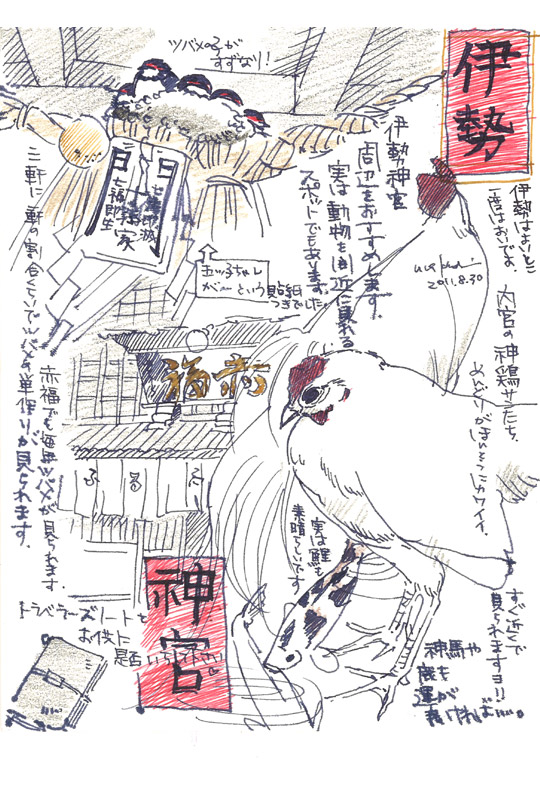 伊勢
伊勢はよいとこ
一度はおいでよ。
伊勢神宮
周辺をおすすめします。
実は動物を間近に見れる
スポットでもあります。
ツバメの子が
すずなり！
五ッ子ちゃん
が〜という貼紙
つきでした。
二軒に一軒の割合くらいでツバメの巣作りが見られます。
2011.8.30
内宮の神鶏サンたち。
めんどりがほぃそっこカワイイ。
すぐ近くで
見られますヨ!!
赤福
赤福でも毎年ツバメが見られます。
ふるふ
実は鯉も
素晴らしいです
神宮
トラベラーズノートを
お供に
是非いらして下さい
神馬や
鹿も
運が
良ければ…。